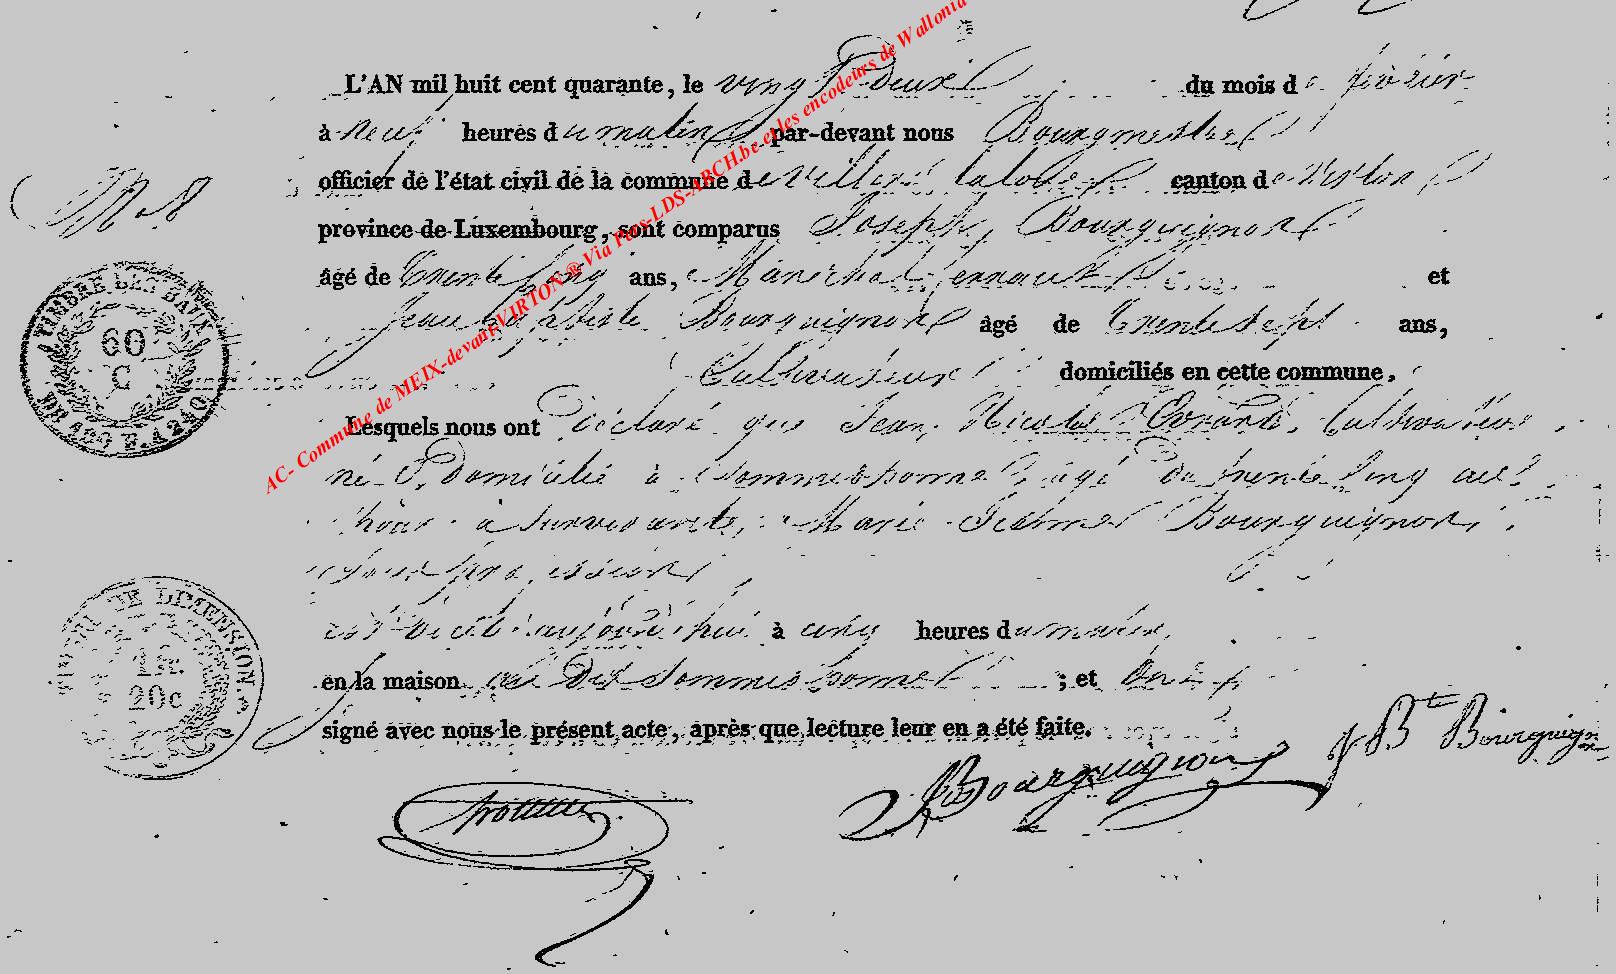 L'AN mil huit cent quarante, le vingt deux du mois de février
à neuf heures du matin par-devant nous Bourgmestre
officier de l'état civil de la commune de Villers la loue canton de Virton
N. 8
province de Luxembourg, sont comparus Joseph Bourguignon
âgé de trente cinq ans, Maréchal ferrant et
Jean Baptiste Bourguignon âgé de trente sept ans,
Cultivateur domiciliés en cette commune.
Lesquels nous ont déclaré que Jean Nicolas Evrard, Cultivateur
né & domicilié à Sommethonne, âgé de trente cinq
Marie Bourguignon
profession
est décédé aujourd'hui à cinq heures du matin,
en la maison Sommethonne ; et ont
signé avec nous le présent acte, après que lecture leur en a été faite.
Bourguignon
J Bte Bourguignon
TIMBRE DES BAUX
60
C
1 fr.
20c
DE DIMENSION.
AC- Commune de MEIX-devant-VIRTON ® Via Pros-LDS-ARCH.be et les encodeurs de Wallonia